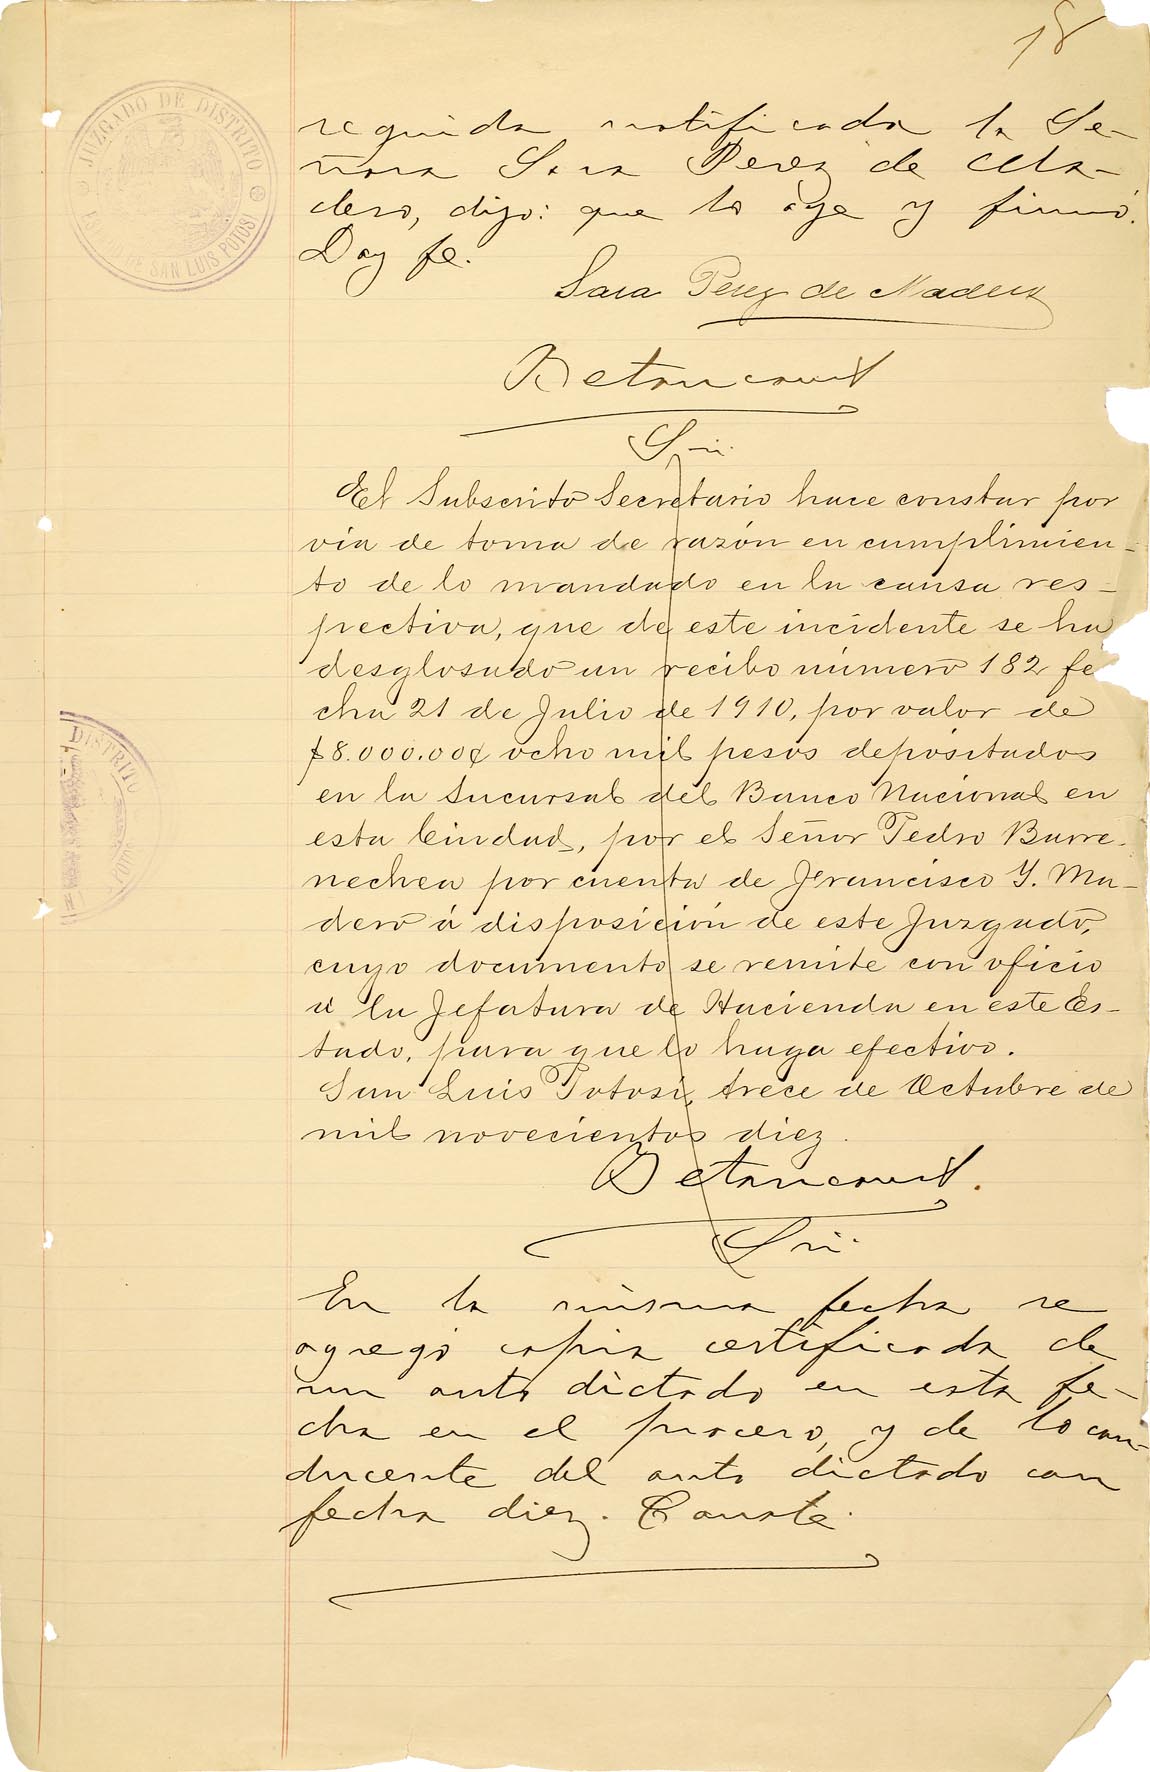 18
JUZGADO DE DISTRITO
ESTADO DE SAN LUIS POTOSI
seguida notificada la Se-
ñora Sara Perez de Ma-
dero, dijo: que lo oye y firmó.
Doy fe.
Sara Perez de Madero
Betancourt
Srio.
El Subscrito Secretario hace constar por
via de toma de razón en cumplimien-
to de lo mandado en la causa res-
pectiva, que de este incidente se ha
desglosado un recibo número 182 fe
cha 21 de Julio de 1910, por valor de
$8.000.00¢ ocho mil pesos depositados
en la Sucursal del Banco Nacional en
esta Ciudad, por el Señor Pedro Barre-
nechea por cuenta de Francisco Y. Ma-
dero á disposición de este Juzgado,
cuyo documento se remite con oficio
a la Jefatura de Hacienda en este Es-
tado, para que lo haga efectivo.
San Luis Potosi, trece de Octubre de
mil novecientos diez.
Betancourt.
Srio.
En la misma fecha se
agregó copia certificada de
un auto dictado en esta fe-
cha en el proceso, y de lo con-
ducente del auto dictado con
fecha diez. Conste.
DISTRITO